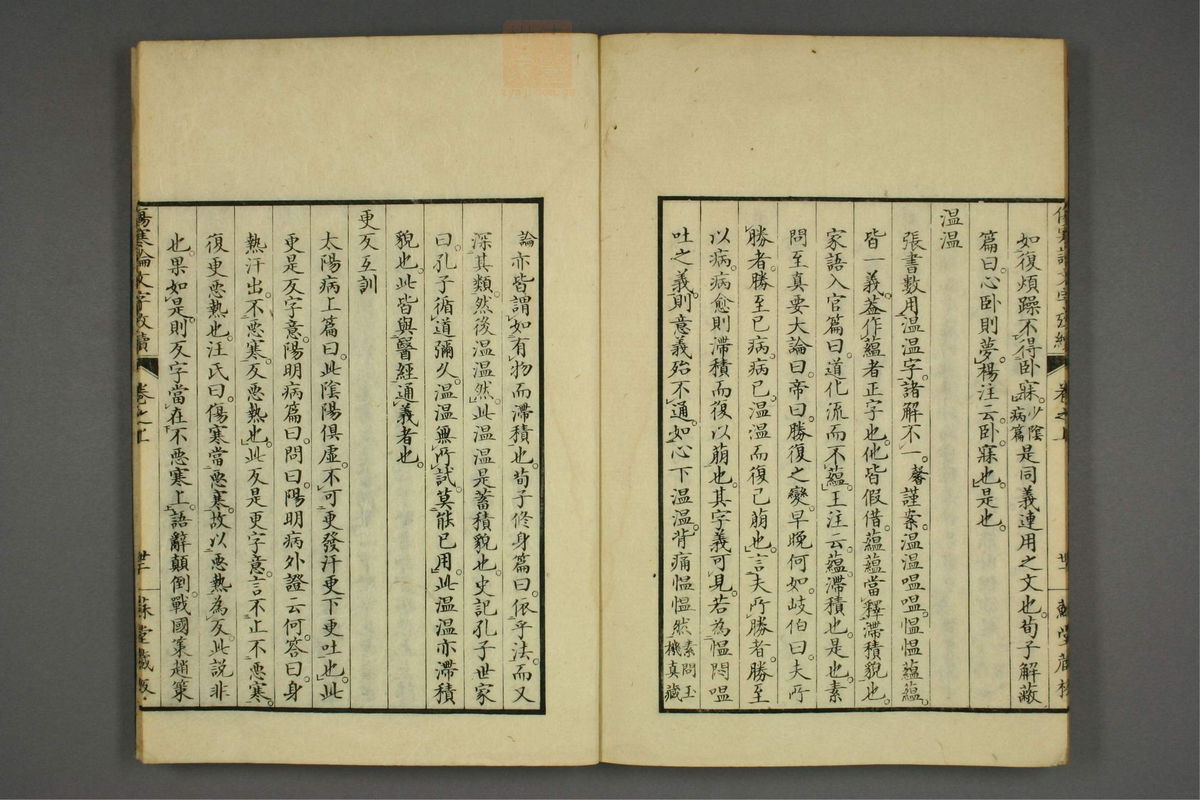 如復煩躁不得卧寐。少陰病篇是同義連用之文也。荀子解蔽
篇曰。心卧則夢。楊注云。卧寐也。是也。
温温
張書數用温温字。諸解不一。馨謹案。温温嗢嗢愠愠蘊蘊。
皆一義。葢作蘊者正字也。他皆假借。蘊蘊當釋滯積貌也。
家語入官篇曰。道化流而不蘊。王注云。蘊滯積也。是也。素
問至真要大論曰。帝曰。勝復之變。早晚何如。岐伯曰。夫所
勝者。勝至已病。病已温温而復已萠也。言夫所勝者。勝至
以病。病愈則滯積而復以萠也。其字義可見。若為愠悶嗢
吐之義。則意義殆不通。如心下温温。背痛愠愠然素問玉機真藏
論亦皆謂如有物而滯積也。荀子修身篇曰。依乎法。而又
深其類。然後温温然。此温温是蓄積貌也。史記孔子世家
曰。孔子循道彌久。温温無所試。莫能已用。此温温亦滯積
貌也。此皆與醫經通義者也。
更反互訓
太陽病上篇曰。此陰陽倶虛。不可更發汗更下更吐也。此
更是反字意。陽明病篇曰。問曰。陽明病外證云何。答曰。身
熱汗出。不惡寒。反惡熱也。此反是更字意。言不止不惡寒。
復更惡熱也。汪氏曰。傷寒當惡寒。故以惡熱為反。此説非
也。果如是。則反字當在不惡寒上。語辭顛倒。戰國策趙策
傷寒論文字攷續 卷之上